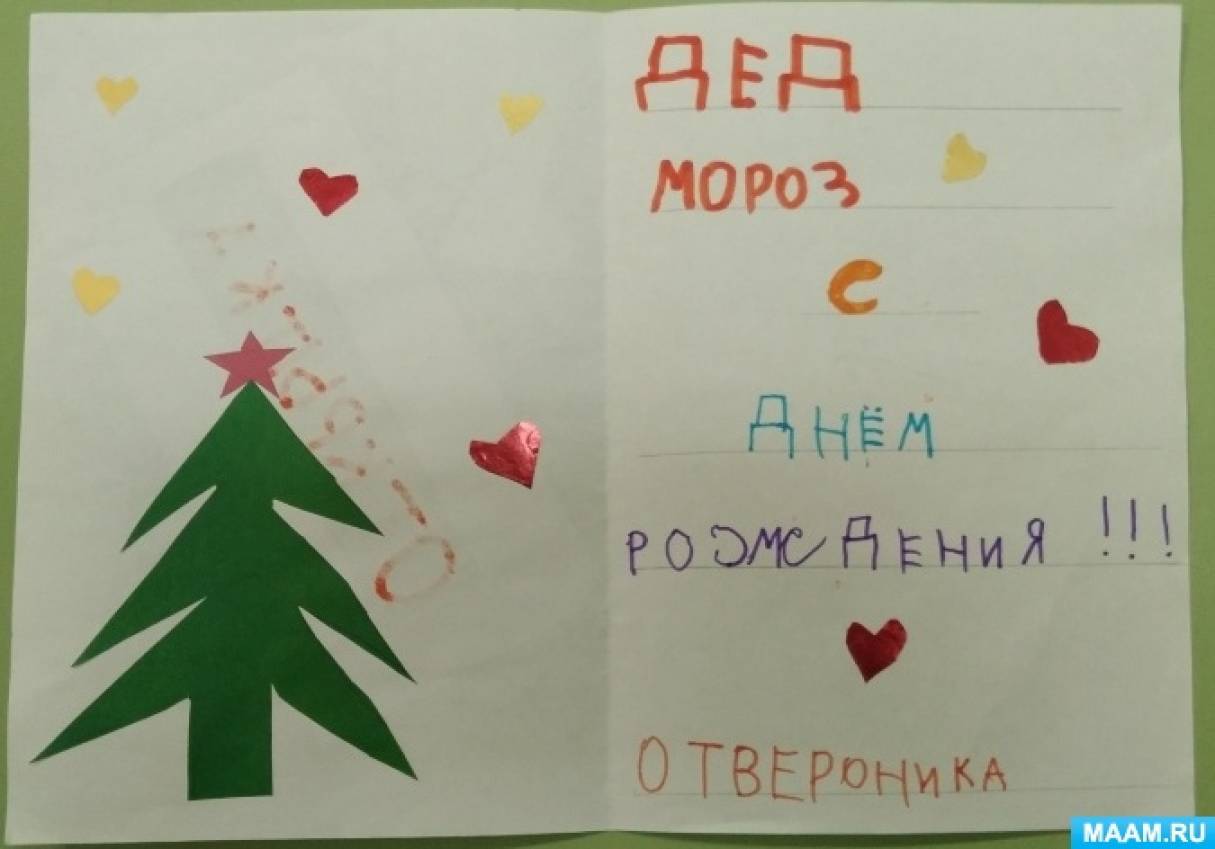 ДЕД
МОРОЗ
С
ДНЁМ
РОЖДЕНИЯ !!!
ОТ ВЕРОНИКА
MAAM.RU